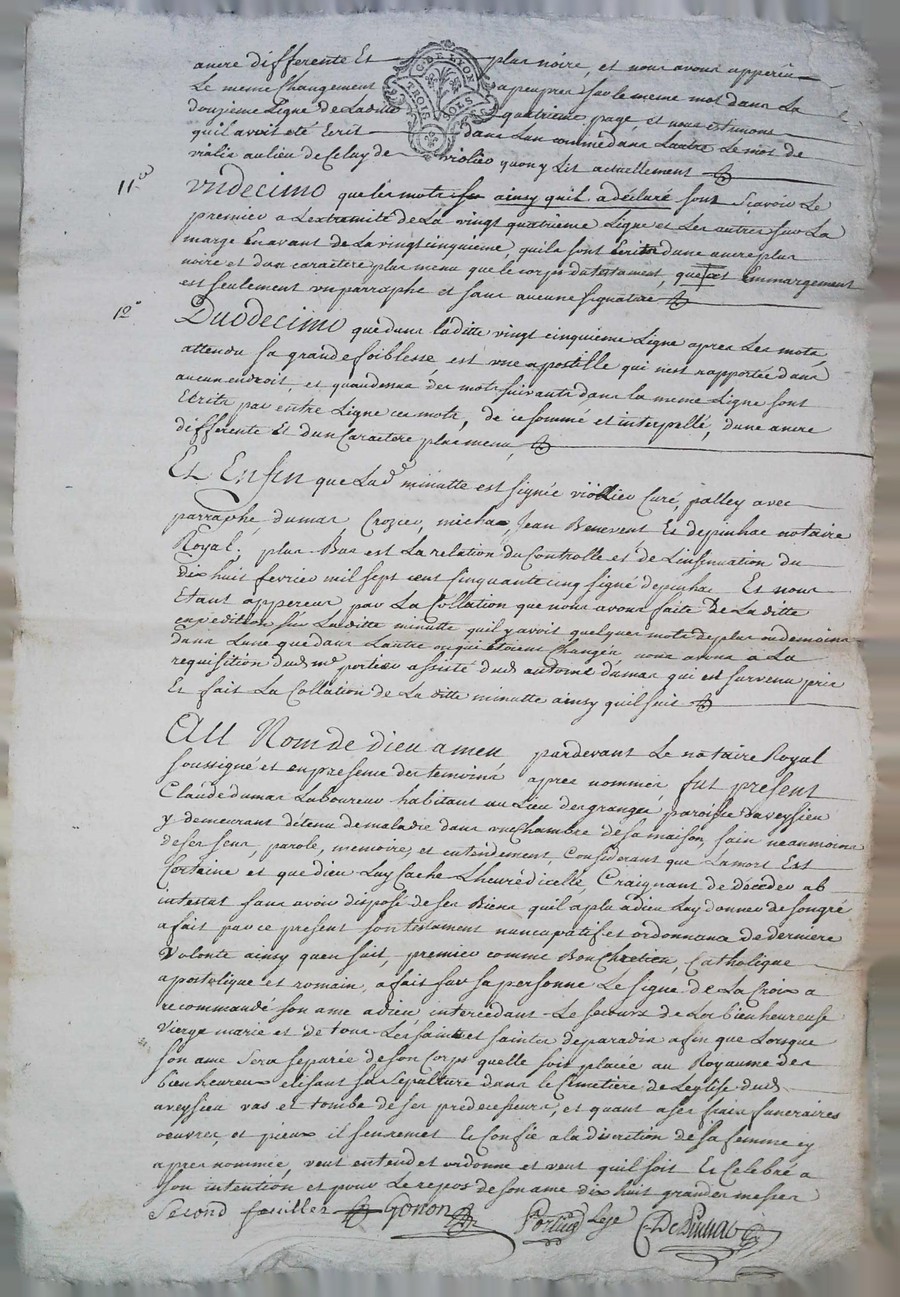 ancre differente Et plus noire, et nous avons apperçu
Le meme Changement apeuprès sur le meme mot dans La
douzieme Ligne de Laditte quatrieme page et nous estimons
qu'il avoit été Ecrit dans Lun comme dans Lautre Le mot de
violie au lieu de Celuy de violier quon y Lit actuellement
G. DE LYON
TROIS SOLS
11° Undecimo que les mots ainsy quil a déclaré sont Scavoir Le
premier a Lextremité de La vingt quatrieme Ligne et Les autres sur La
marge En avant de La vingt cinquieme, quils sont Ecrits dune ancre plus
noire et dun caractere plus menu que le corps du testament, que cet Emmargement
est seulement un parraphe et sans aucune signature
12° Duodecimo que dans laditte vingt cinquieme Ligne apres Les mots
attendu sa grande foiblesse est une apostille qui n'est rapportée dans
aucun endroit, et quaudessus des mots suivants dans la meme Ligne sont
Ecrits par entre Ligne ces mots, de ce sommé et interpellé, dune ancre
differente Et dun Caractere plus menu
Et Enfin que Lad.e minutte est signée violier Curé, palley avec
parraphe, dumas Crozier, micha, Jean Benevent Et depinhac notaire
Royal; plus Bas est La relation du Controlle et de Linsinuation du
dix huit fevrier mil sept cent cinquante cinq signé depinhac Et nous
Etant apperçus par La Collation que nous avons faite de La ditte
expedition sur Laditte minutte quil y avoit quelques mots de plus ou de moins
dans Lune que dans Lautre ou qui Etoient Changés nous avons a La
requisition dud. me. portier assisté dud. antoine dumas qui est survenu pris
Et fait La Collation de La ditte minutte ainsy quil suit
AU Nom de dieu amen pardevant Le notaire Royal
soussigné et en presence des temoins apres nommés fut present
Claude dumas Laboureur habitant au Lieu des granges, paroisse daveysieu
y demeurant détenu de maladie dans une Chambre de sa maison, sain neanmoins
de ses sens, parole, memoire, et entendement, Considerant que La mort Est
Certaine et que dieu Luy Cache Lheure dicelle, Craignant de décéder ab
intestat sans avoir disposé de ses Biens quil a plu a dieu Luy donner de son gré
a fait par ce present son testament nuncupatif et ordonnance de derniere
Volonté ainsy quen suit, premier comme Bon Chretien, Catholique
apostolique et romain, a fait sur sa personne Le signe de La Croix a
recommandé son ame a dieu intercedant Le secours de La bien heureuse
vierge marie et de tous Les saints et saintes de paradis afin que Lorsque
son ame sera separée de son Corps quelle soit placée au Royaume des
bien heureux elisant sa sepulture dans le Cimetiere de Leglise dud.
aveysieu vas et tombe de ses predecesseurs, et quant a ses frais funeraires
oeuvres et pieux il sen remet Et Confie a la discretion de sa femme cy
apres nommée, veut entend et ordonne et veut quil soit Et Celebré a
son intention et pour Le repos de son ame dix huit grandes messes
Second feuillet Gonon Portier Leje DePinhac